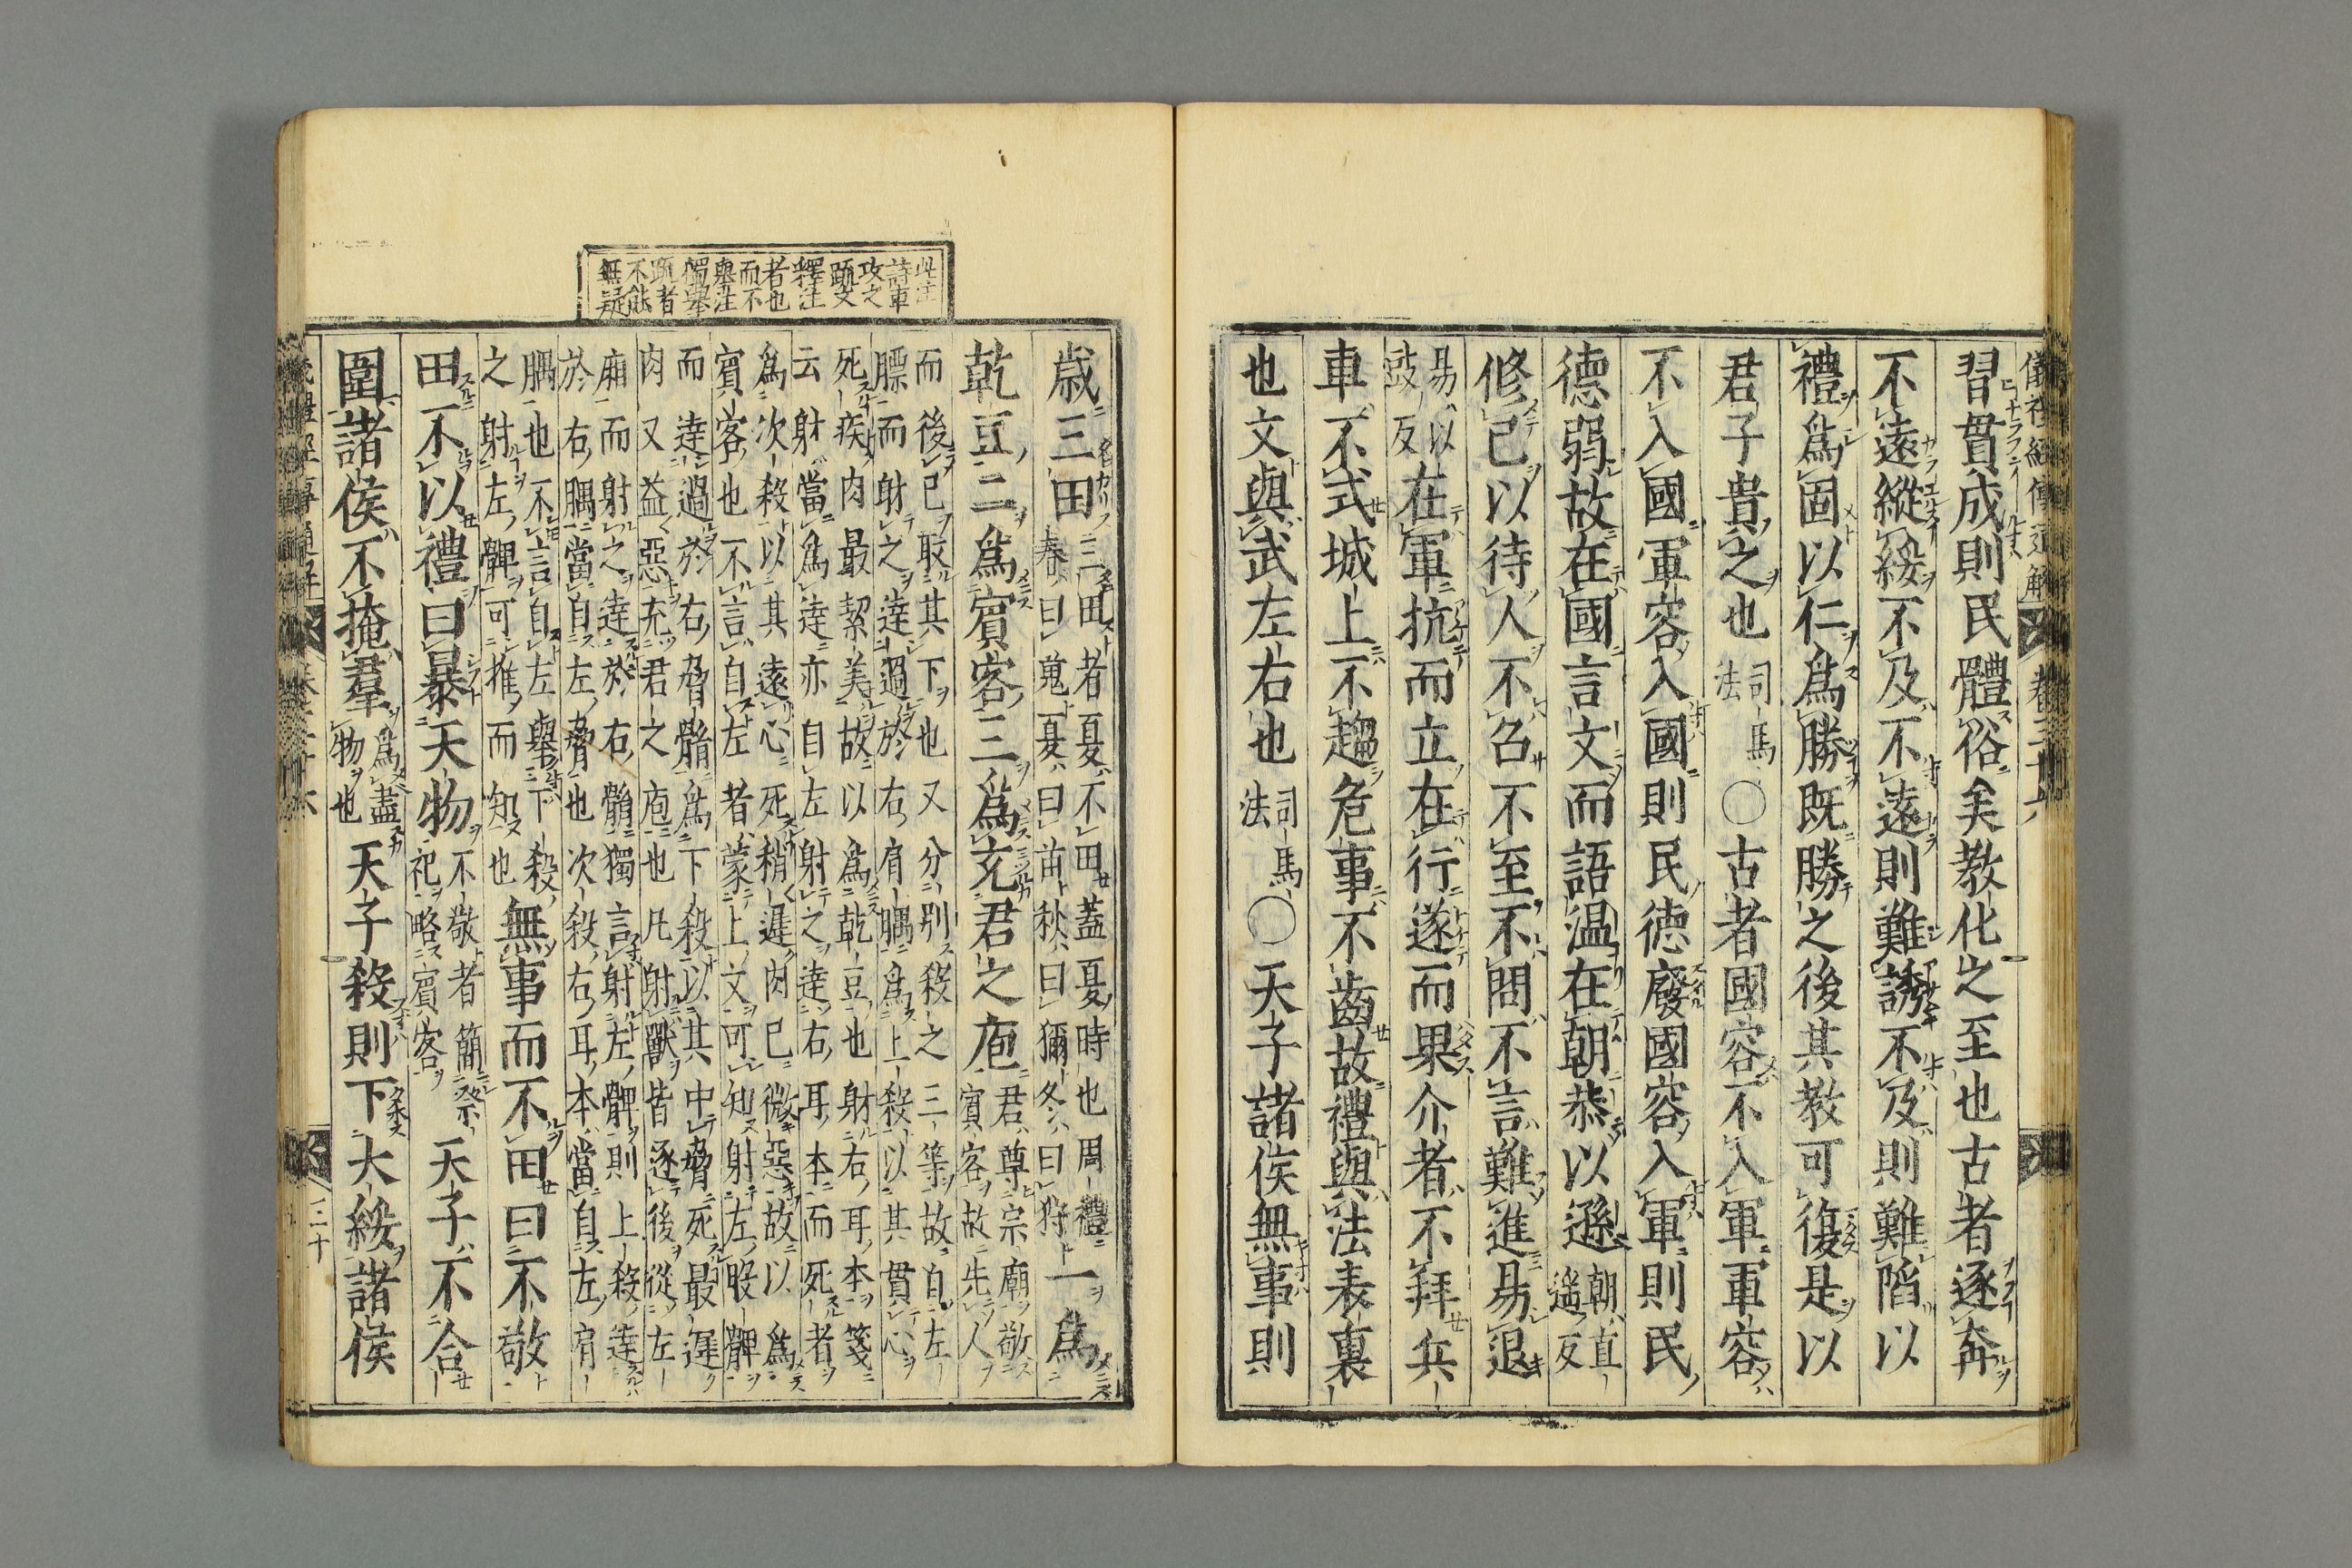 習貫成則民體俗矣教化之至也古者逐奔
不遠縱綏不及不遠則難誘不及則難陷以
禮爲固以仁爲勝既勝之後其教可復是以
君子貴之也司馬法○古者國容不入軍軍容
不入國軍容入國則民德廢國容入軍則民
德弱故在國言文而語温在朝恭以遜朝直遥反
修已以待人不召不至不問不言難進易退
易以豉反在軍抗而立在行遂而果介者不拜兵
車不式城上不趨危事不齒故禮與法表裏
也文與武左右也司馬法○天子諸侯無事則
歳三田三田者夏不田蓋夏時也周禮春曰蒐夏曰苗秋曰獮冬曰狩一爲
乾豆二爲賓客三爲充君之庖君尊宗廟敬賓客故先人
而後已取其下也又分別殺之三等故自左
膘而射之達過於右肩腢爲上殺以其貫心
死疾肉最絜美故以爲乾豆也射右耳本箋
云射當爲達亦自左射之達右耳本而死者
爲次殺以其遠心死稍遲肉已微惡故以爲
賓客也不言自左者蒙上文可知射左股髀
而達過於右脅䯚爲下殺以其中脅死最遲
肉又益惡充君之庖也凡射獸皆逐後從左
廂而射之達於右䯚獨言射左髀則上殺達
於右腢當自左脅也次殺右耳本當自左肩
腢也不言自左舉下殺
之射左髀可推而知也無事而不田曰不敬
田不以禮曰暴天物不敬者簡祭祀略賓客天子不合
圍諸侯不掩羣爲盡物也天子殺則下大綏諸侯
此注
詩車
攻之
䟽文
釋注
者也
而不
舉注
獨舉
䟽者
不能
無疑
儀禮經傳通解 卷三十六
三十